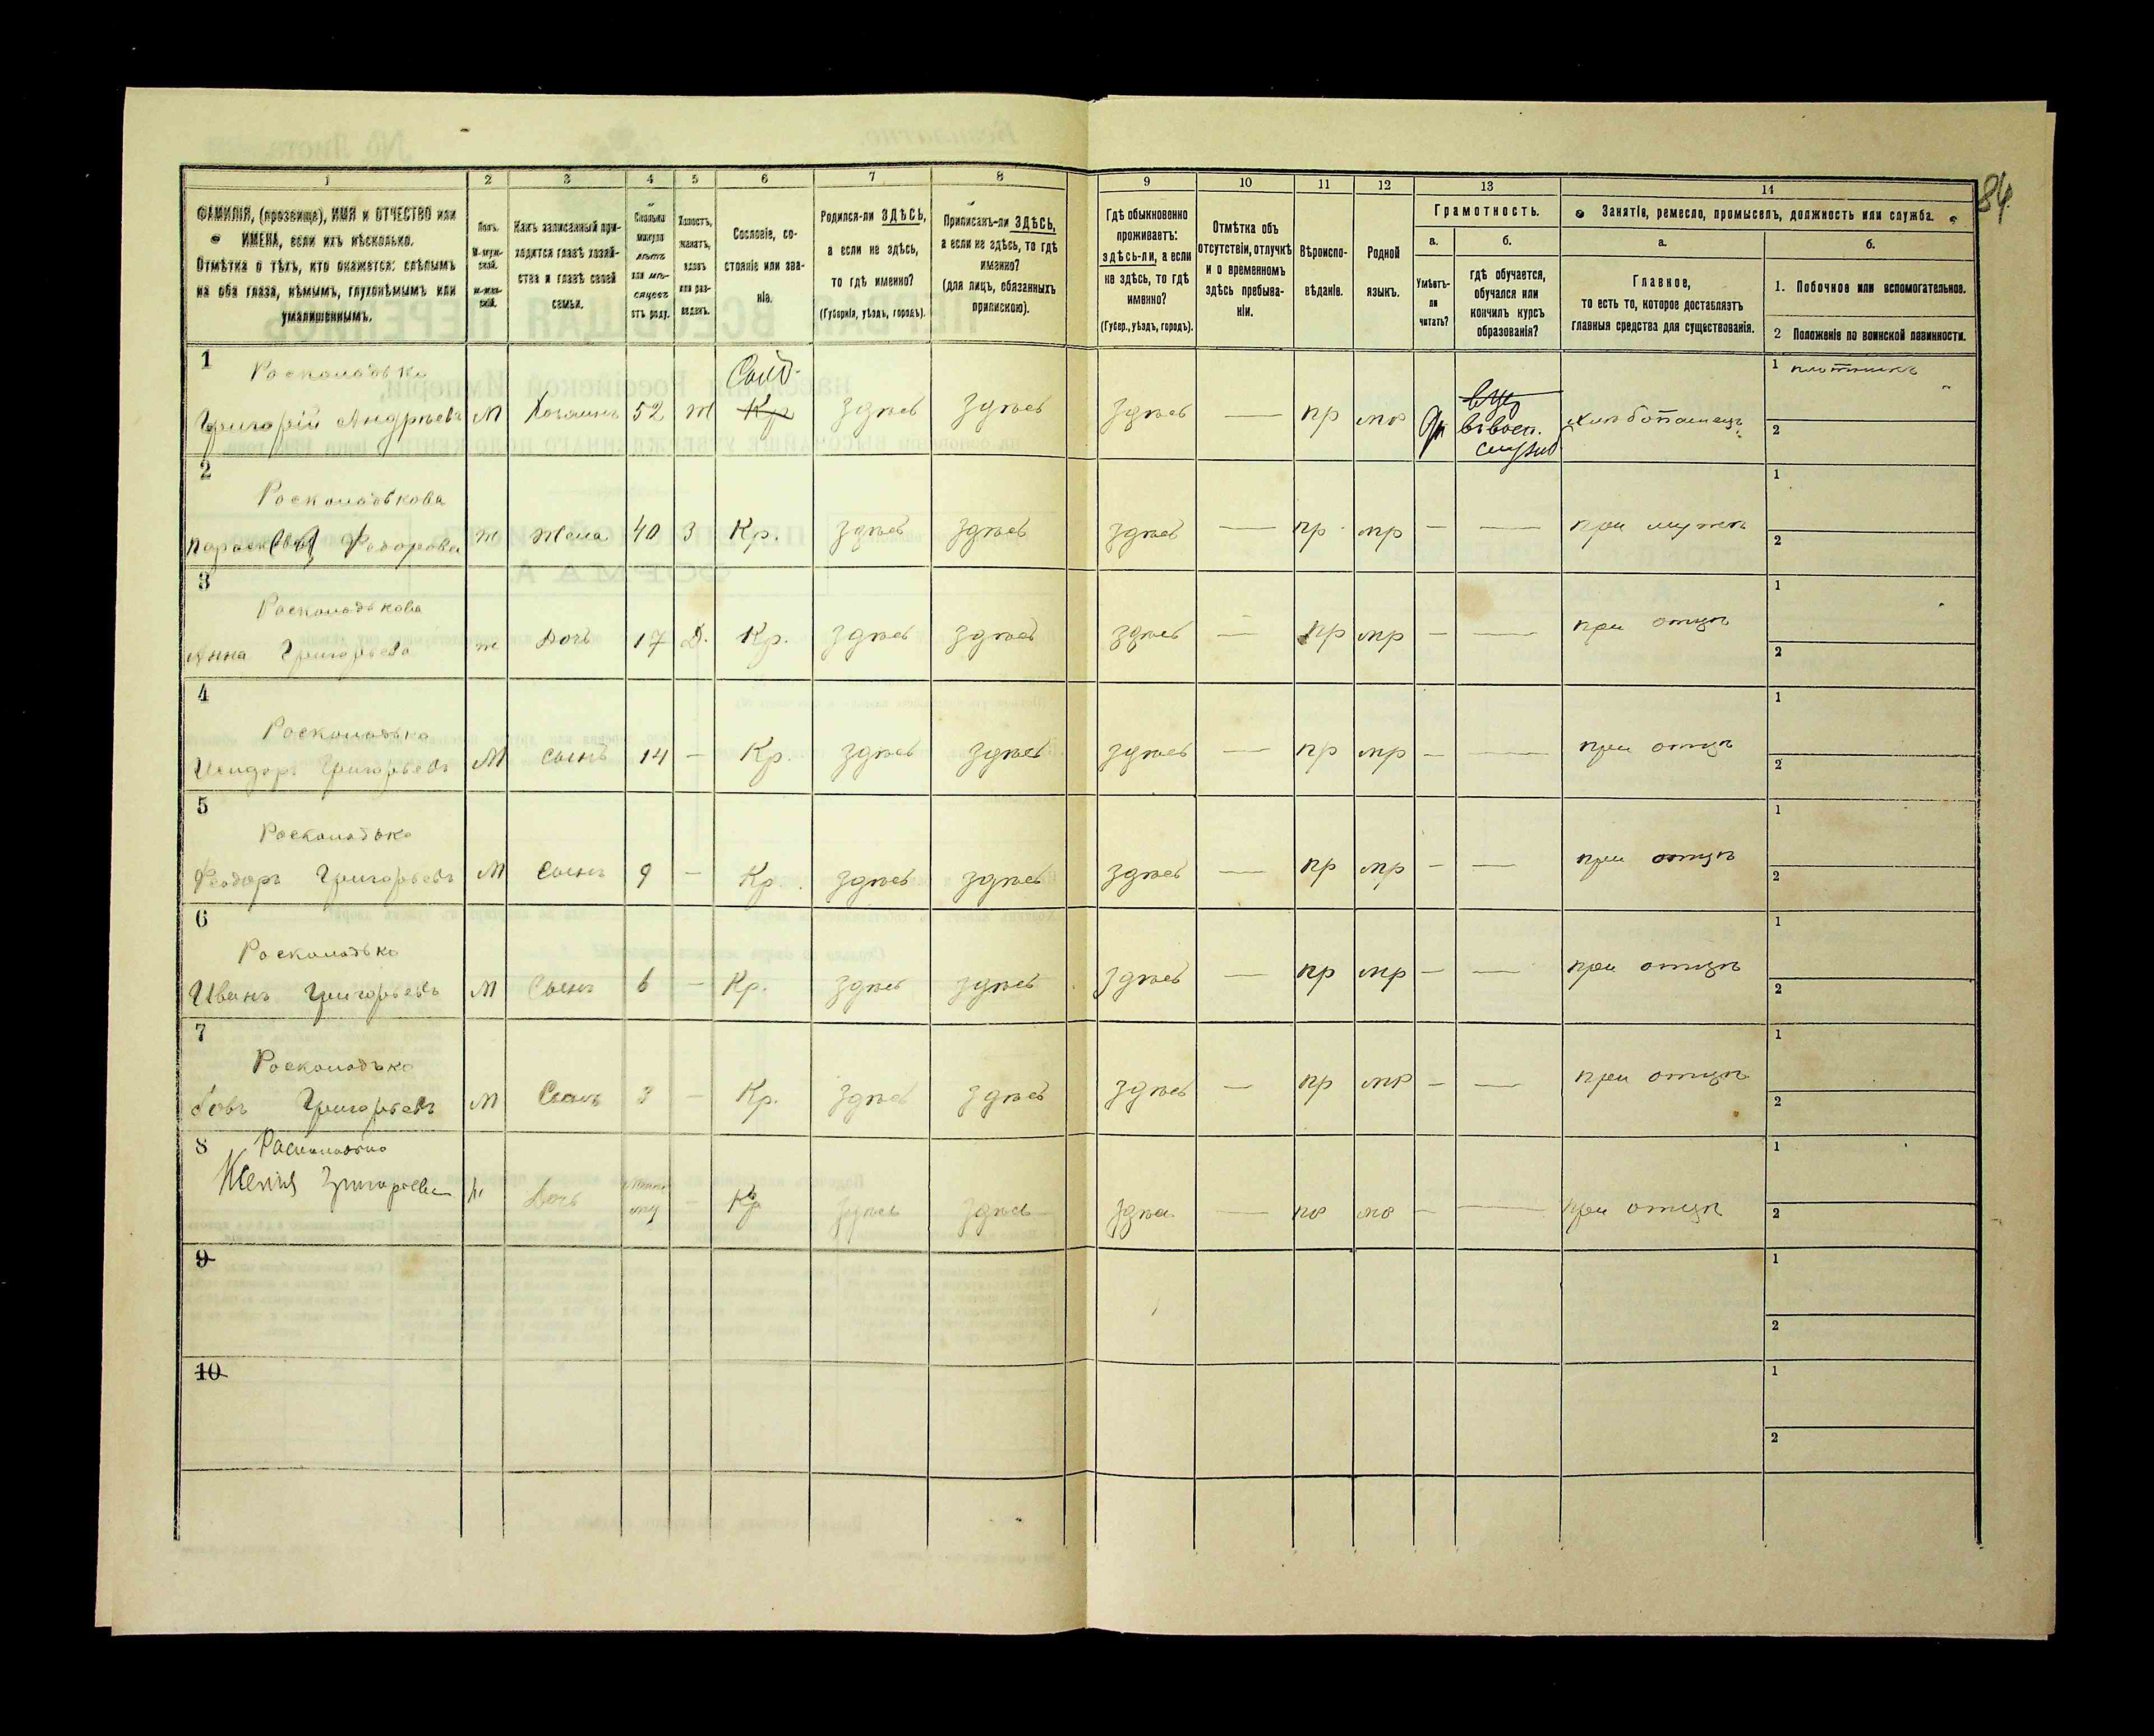 84
1 2 3 4 5 6 7 8 9 10 11 12 13 14
ФАМИЛІЯ, (прозвище), ИМЯ и ОТЧЕСТВО или
ИМЕНА, если ихъ нѣсколько.
Отмѣтка о тѣхъ, кто окажется: слѣпымъ
на оба глаза, нѣмымъ, глухонѣмымъ или
умалишеннымъ.
Полъ.
М-муж-
ской.
ж-жен-
скій.
Какъ записанный при-
ходится главѣ хозяй-
ства и главѣ своей
семьи.
Сколько
минуло
лѣтъ
или мѣ-
сяцевъ
отъ роду.
Холостъ,
женатъ,
вдовъ
или раз-
веденъ.
Сословіе, со-
стояніе или зва-
ніе.
Родился-ли ЗДѢСЬ,
а если не здѣсь,
то гдѣ именно?
(Губернія, уѣздъ, городъ).
Приписанъ-ли ЗДѢСЬ,
а если не здѣсь, то гдѣ
именно?
(для лицъ, обязанныхъ
припискою).
Гдѣ обыкновенно
проживаетъ:
здѣсь-ли, а если
не здѣсь, то гдѣ
именно?
(Губер., уѣздъ, городъ).
Отмѣтка объ
отсутствіи, отлучкѣ
и о временномъ
здѣсь пребыва-
ніи.
Вѣроиспо-
вѣданіе.
Родной
языкъ.
Грамотность.
а.
Умѣетъ-
ли
читать?
б.
гдѣ обучается,
обучался или
кончилъ курсъ
образованія?
Занятіе, ремесло, промыселъ, должность или служба.
а.
Главное,
то есть то, которое доставляетъ
главныя средства для существованія.
б.
1. Побочное или вспомогательное.
2 Положеніе по воинской повинности.
1 Росколодько Солд. 1 плотникъ
Григорій Андрѣевъ М Хозяинъ 52 ж Кр здѣсь здѣсь здѣсь — пр мр Гр въ воен. Хлѣбопашецъ
служб. 2
2 Росколодькова 1
Параскева Федорова ж жена 40 З Кр. здѣсь здѣсь здѣсь — пр мр — — при мужѣ 2
3 Росколодькова 1
Анна Григорьева ж Дочь 17 Д. Кр. здѣсь здѣсь здѣсь — пр мр — — при отцѣ 2
4 Росколодько 1
Исидоръ Григорьевъ М сынъ 14 — Кр. здѣсь здѣсь здѣсь — пр мр — — при отцѣ 2
5 Росколодько 1
Феодоръ Григорьевъ М Сынъ 9 — Кр. здѣсь здѣсь здѣсь — пр мр — — при отцѣ 2
6 Росколодько 1
Иванъ Григорьевъ М Сынъ 6 — Кр. здѣсь здѣсь здѣсь — пр мр — — при отцѣ 2
7 Росколодько 1
Григорьевъ М Сынъ 3 — Кр. здѣсь здѣсь здѣсь — пр мр — — при отцѣ 2
8 Росколодько 1
Ксенія Григорьева ж Дочь — Кр здѣсь здѣсь здѣсь — пр мр — — при отцѣ 2
9 1
2
10 1
2